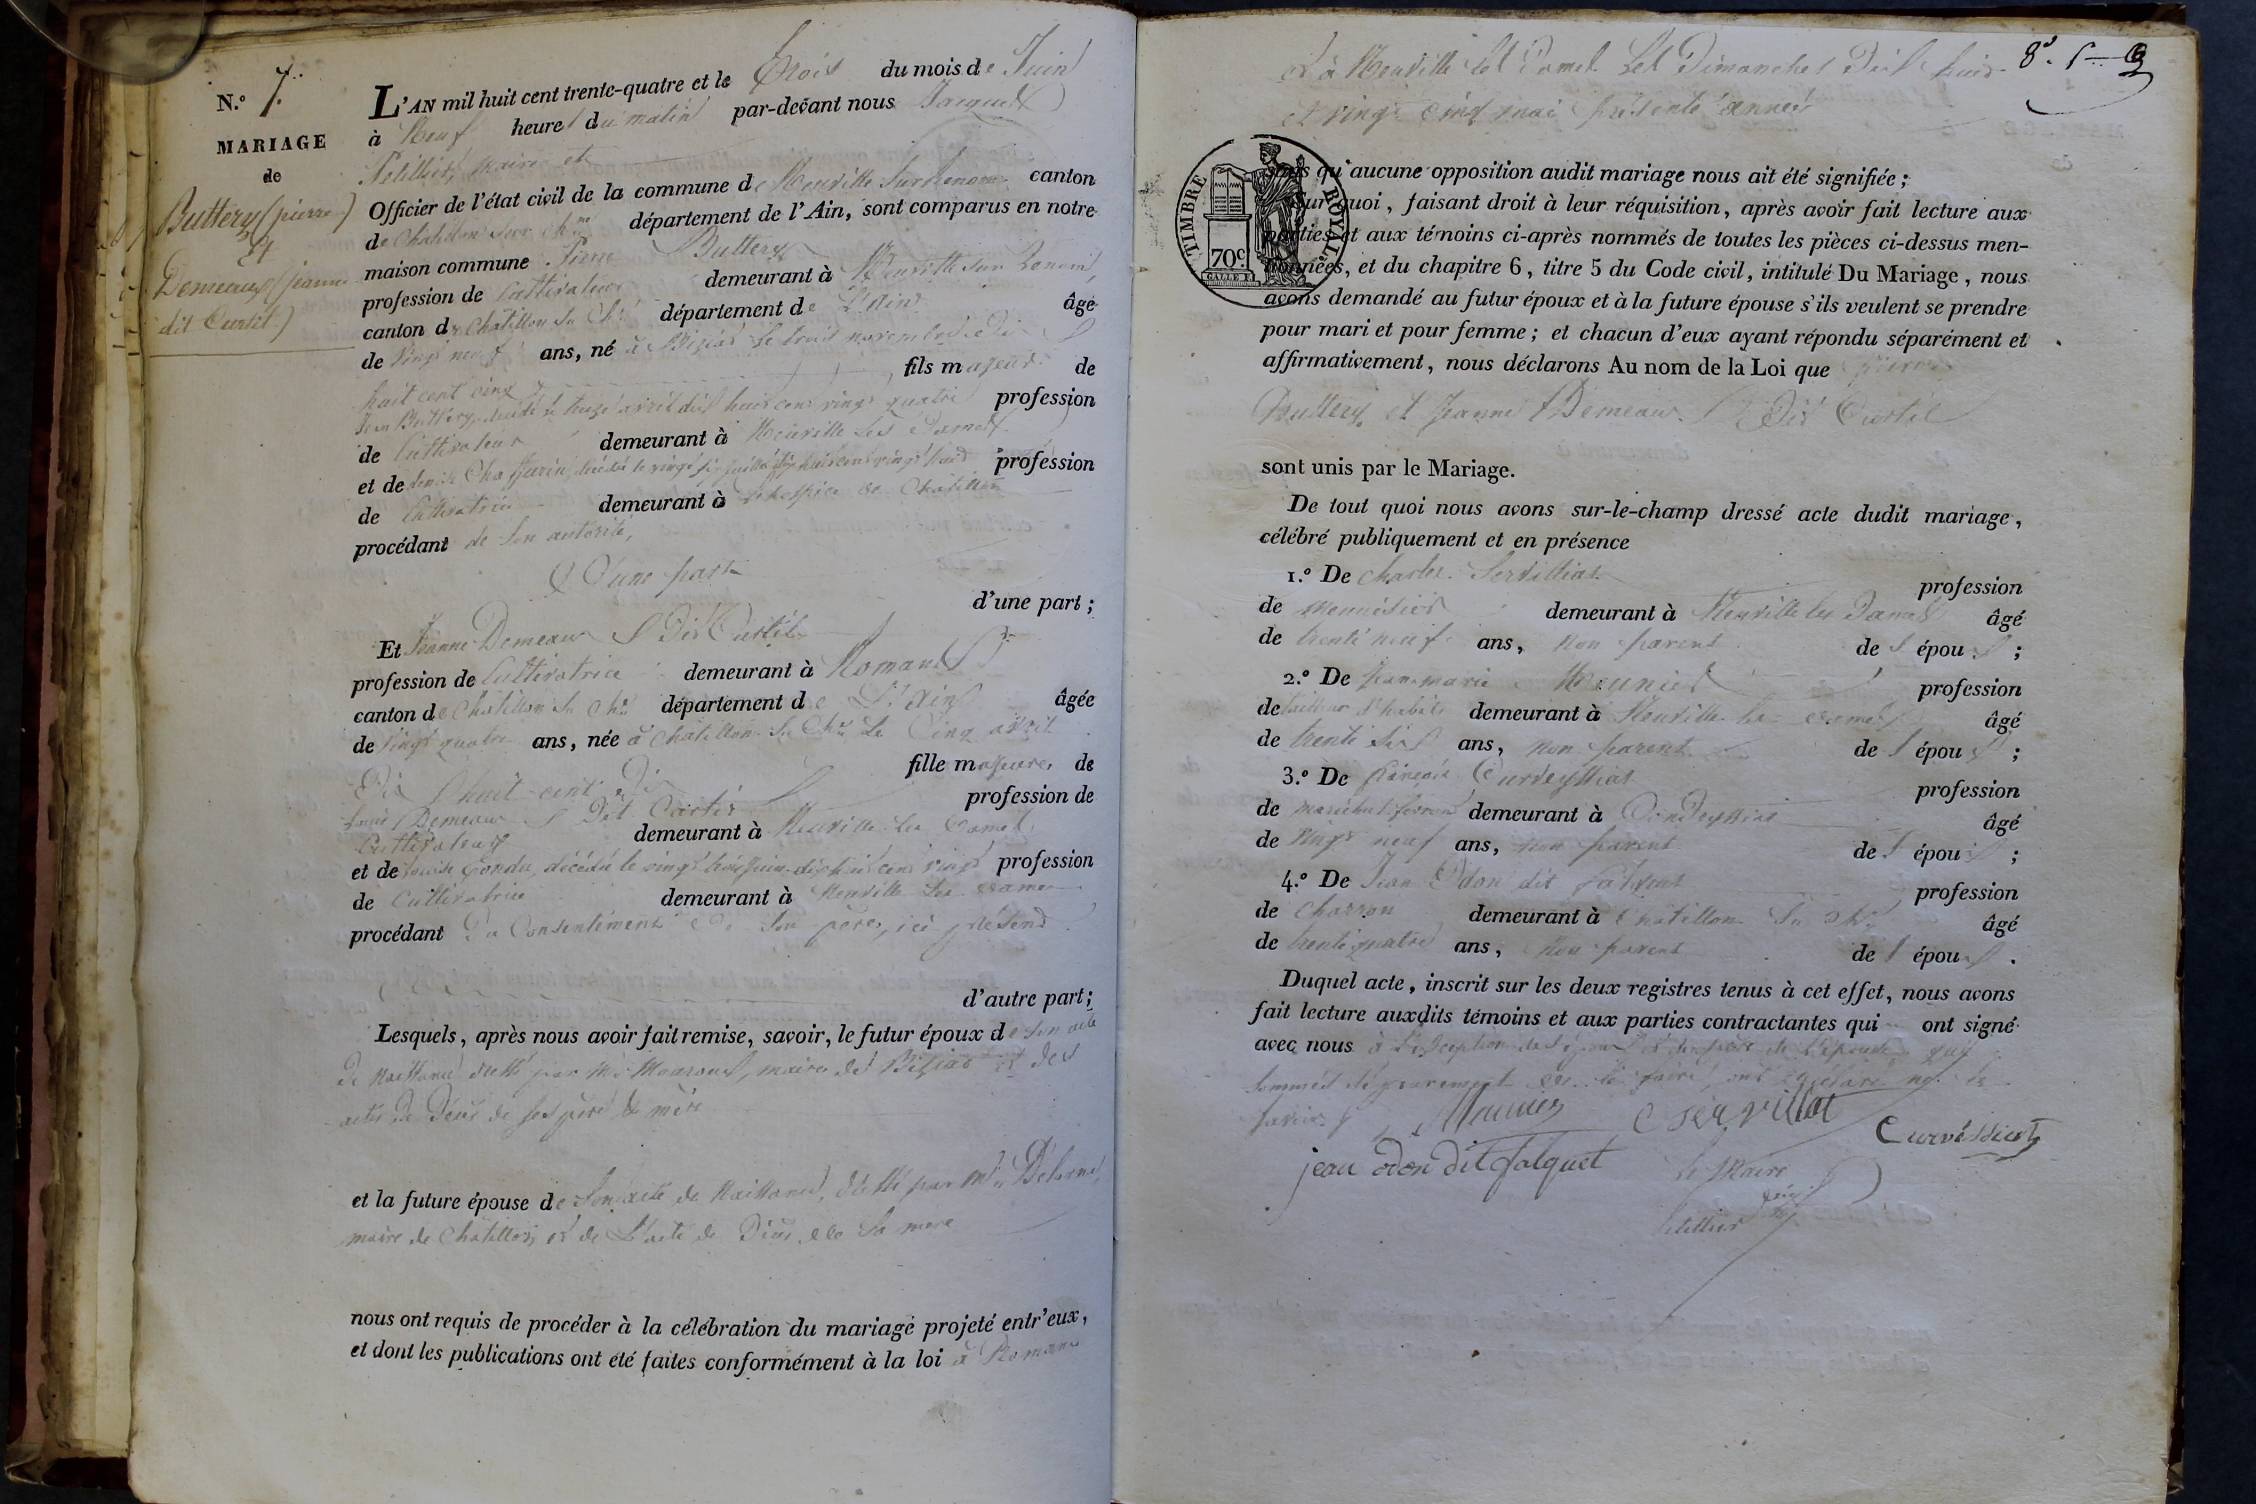 N.° 7.
MARIAGE
de
Buttery (pierre)
et
Demeaux (jeanne
dit Curtil)
L'AN mil huit cent trente-quatre et le trois du mois de Juin
à Neuf heures du matin par-devant nous Jacques
maire et
Officier de l'état civil de la commune de Neuville sur Renom canton
de Chatillon sur Ch.ne département de l'Ain, sont comparus en notre
maison commune Pierre Buttery
profession de Cultivateur demeurant à Neuville sur Renom,
canton de Chatillon su Ch. département de L'Ain âgé
de vingt neuf ans, né à Biziat le trois novembre dix
huit cent cinq fils majeur de
Jean Buttery, décédé le treize avril dix huit cent vingt quatre profession
de Cultivateur demeurant à Neuville Les Dames
et de Chaffurin, décédée le vingt juillet dix huit cent vingt huit profession
de Cultivatrice demeurant à l'hospice de Chatillon
procédant de son autorité,
D'une part
d'une part ;
Et Jeanne Demeaux Dit Curtil
profession de Cultivatrice demeurant à Romans
canton de Chatillon su Ch.ne département de L'Ain âgée
de vingt quatre ans, née à Chatillon su Ch.ne Le Cinq avril
Dix huit cent Dix fille majeure de
Demeaux Dit Curtil profession de
Cultivateur demeurant à Neuville les Dames
et de Louise Gondu, décédée le vingt trois juin dix huit cent vingt profession
de Cultivatrice demeurant à Neuville Les Dames
procédant Du Consentement De son père, ici présent
d'autre part ;
Lesquels, après nous avoir fait remise, savoir, le futur époux de son acte
de Naissance délivré par Mr maire de Biziat et des
actes de Décès de ses père & mère
et la future épouse de son acte de Naissance, délivré par Mr Delorme,
maire de Châtillon, et de L'acte de Décès de sa mère
nous ont requis de procéder à la célébration du mariage projeté entr'eux,
et dont les publications ont été faites conformément à la loi à Romans
et à Neuville les Dames Les Dimanches Dix huit
et vingt cinq mai présente année
TIMBRE ROYAL
70c.
sans qu'aucune opposition audit mariage nous ait été signifiée ;
Sur quoi, faisant droit à leur réquisition, après avoir fait lecture aux
parties et aux témoins ci-après nommés de toutes les pièces ci-dessus men-
tionnées, et du chapitre 6, titre 5 du Code civil, intitulé Du Mariage, nous
avons demandé au futur époux et à la future épouse s'ils veulent se prendre
pour mari et pour femme ; et chacun d'eux ayant répondu séparément et
affirmativement, nous déclarons Au nom de la Loi que pierre
Buttery et Jeanne Demeaux Dit Curtil
sont unis par le Mariage.
De tout quoi nous avons sur-le-champ dressé acte dudit mariage,
célébré publiquement et en présence
1.° De Charles Servillat profession
de menuisier demeurant à Neuville les Dames âgé
de trente neuf ans, non parent de l'époux ;
2.° De jean-marie Meunier profession
de tailleur d'habits demeurant à Neuville les Dames âgé
de trente six ans, non parent de l'époux ;
3.° De françois Curveyssiat profession
de maréchal ferrant demeurant à Condeyssiat âgé
de vingt neuf ans, non parent de l'époux ;
4.° De Jean Odon dit falquet profession
de Charron demeurant à Chatillon su Ch. âgé
de trente quatre ans, non parent de l'époux .
Duquel acte, inscrit sur les deux registres tenus à cet effet, nous avons
fait lecture auxdits témoins et aux parties contractantes qui ont signé
avec nous à l'exception des époux et du père de l'épouse, qui
sommés séparément de le faire ont déclaré ne le
savoir
Meunier C Servillat Curvessiat
jean odon dit falquet Le Maire